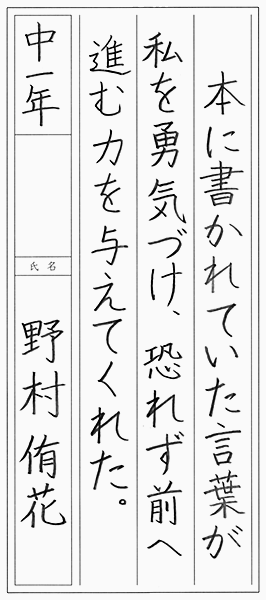 本に書かれていた言葉が
私を勇気づけ、恐れず前へ
進む力を与えてくれた。
中一年
氏名
野村侑花